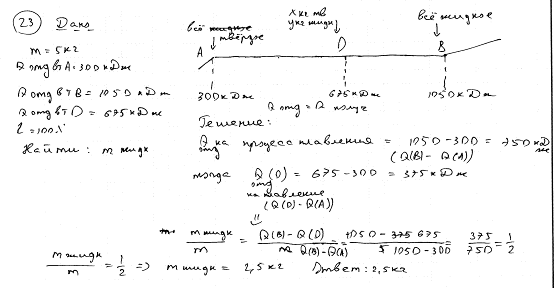 23 Дано
m = 5 кг
Q отд в т A = 300 кДж
Q отд в т B = 1050 кДж
Q отд в т D = 675 кДж
Найти: m жидк
всё жидкое
твёрдое
X кг тв
y кг жидк
всё жидкое
A D B
300 кДж 675 кДж 1050 кДж
Q отд = Q получ
Решение:
Q отд на процесс плавления = 1050 - 300 = 750 кДж
(Q(B) - Q(A))
тогда Q отд (D) = 675 - 300 = 375 кДж
на плавление
(Q(D) - Q(A))
m жидк / m = Q(B) - Q(D) / Q(B) - Q(A) = 1050 - 375 675 / 1050 - 300 = 375 / 750 = 1/2
m жидк / m = 1/2 => m жидк = 2,5 кг Ответ: 2,5 кг